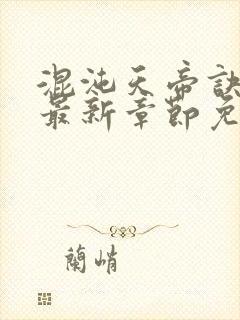 混沌天帝訣
最新章節免
蘭峭